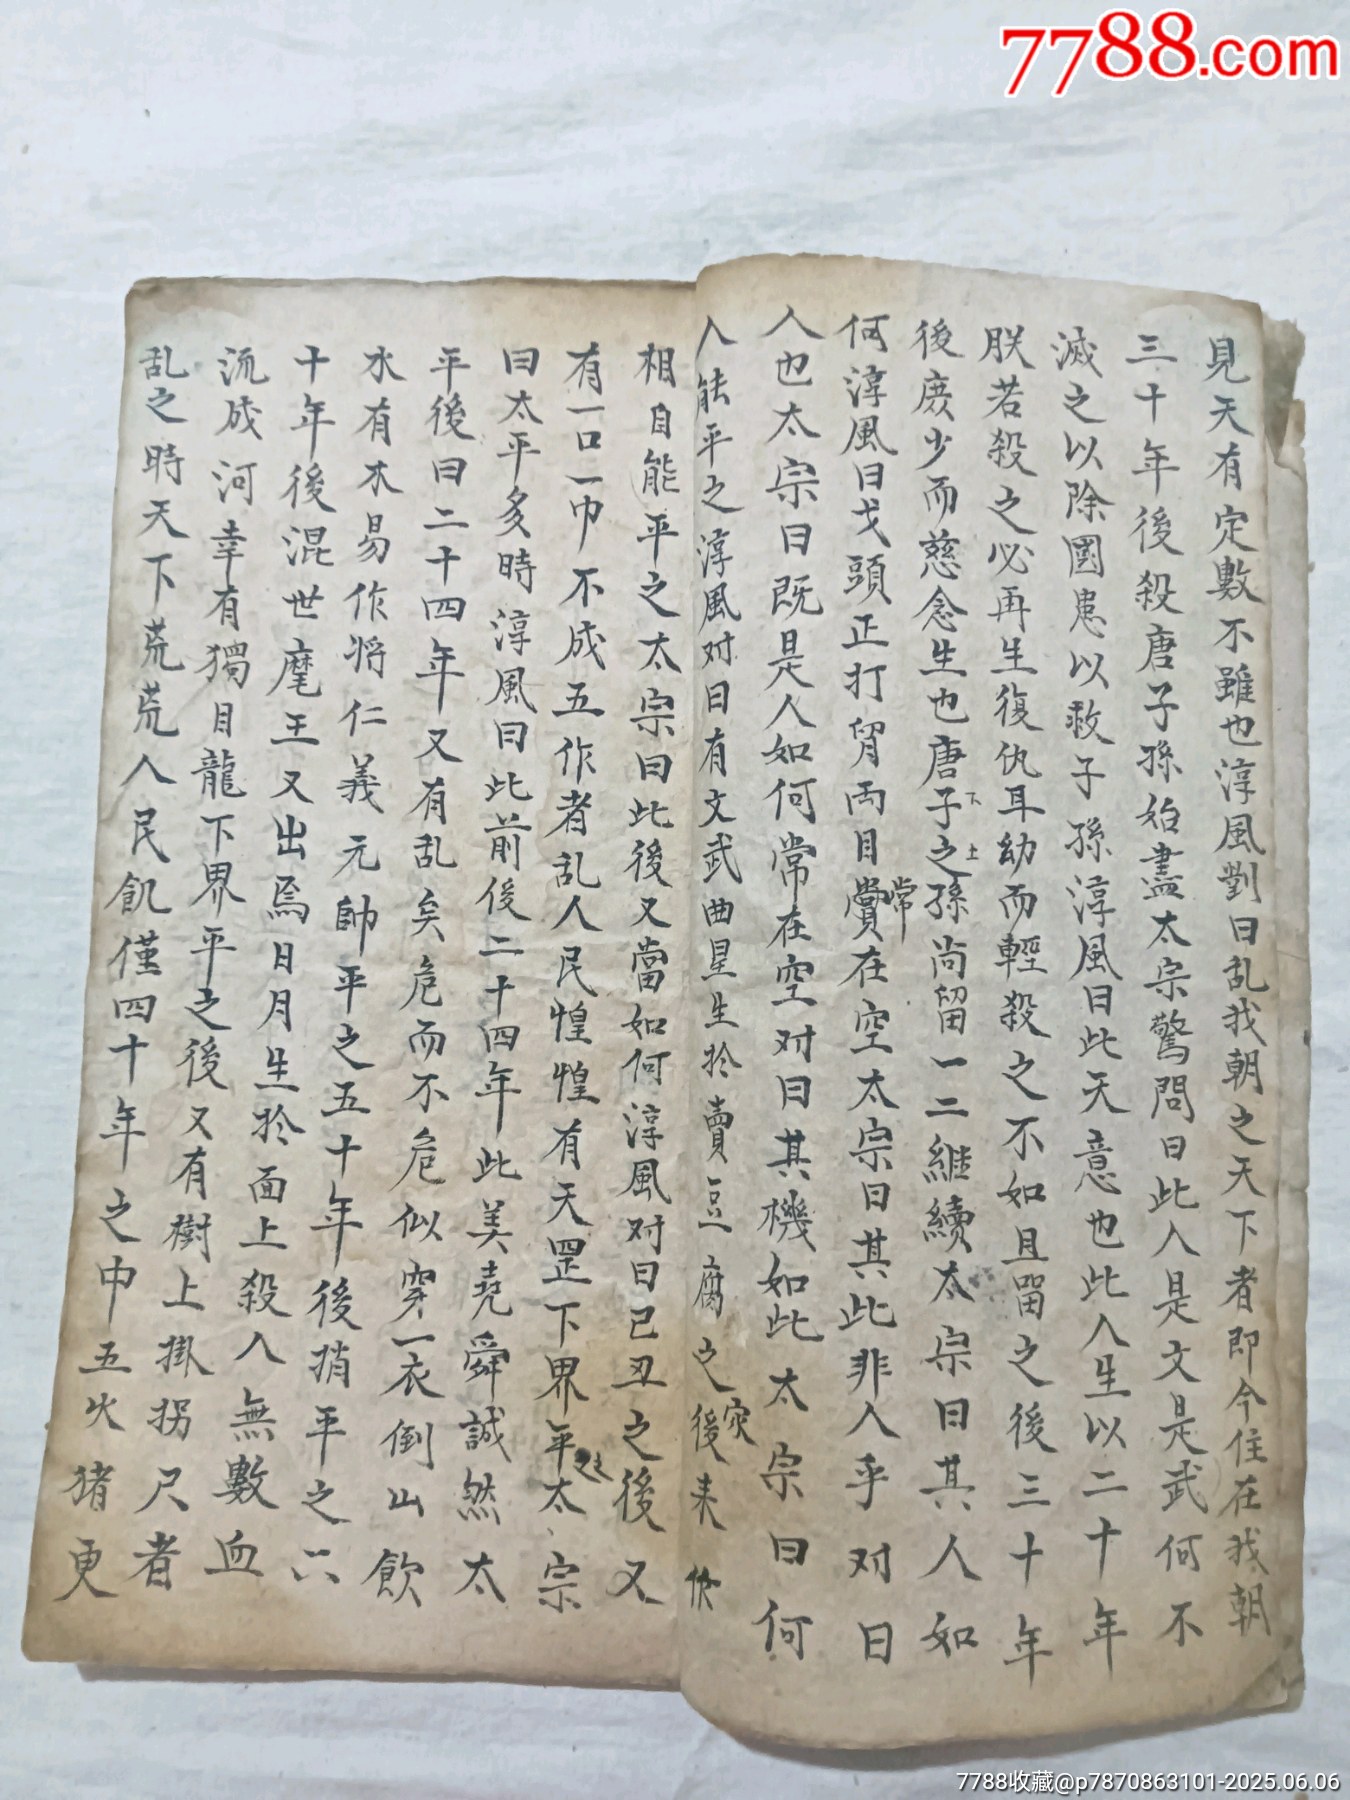 7788.com
見天有定數不雖也淳風對曰乱我朝之天下者即今住在我朝
三十年後殺唐子孫始盡太宗驚問曰此人是文是武何不
滅之以除國患以救子孫淳風曰此天意也此人生以二十年
朕若殺之必再生復仇耳幼而輕殺之不如且留之後三十年
後庻少而慈念生也唐子下之上孫尚留一二継續太宗曰其人如
何淳風曰戈頭正打胷両目賞常在空太宗曰其此非人乎对曰
人也太宗曰既是人如何常在空对曰其機如此太宗曰何
人能平之淳風对曰有文武曲星生於賣豆腐之家後来作
相自能平之太宗曰此後又當如何淳風对曰已丑之後又
有一口一巾不成五作者乱人民惶惶有天罡下界年之太宗
曰太平多時淳風曰此前後二十四年此美堯舜誠然太
平後曰二十四年又有乱矣危而不危似穿一衣倒山飲
水有木易作将仁義元帥平之五十年後稍平之六
十年後混世麾王又出焉日月生於面上殺人無數血
流成河幸有獨目龍下界平之後又有樹上掛拐尺者
乱之時天下荒荒人民飢僅四十年之中五火猪更
7788收藏@p7870863101-2025.06.06